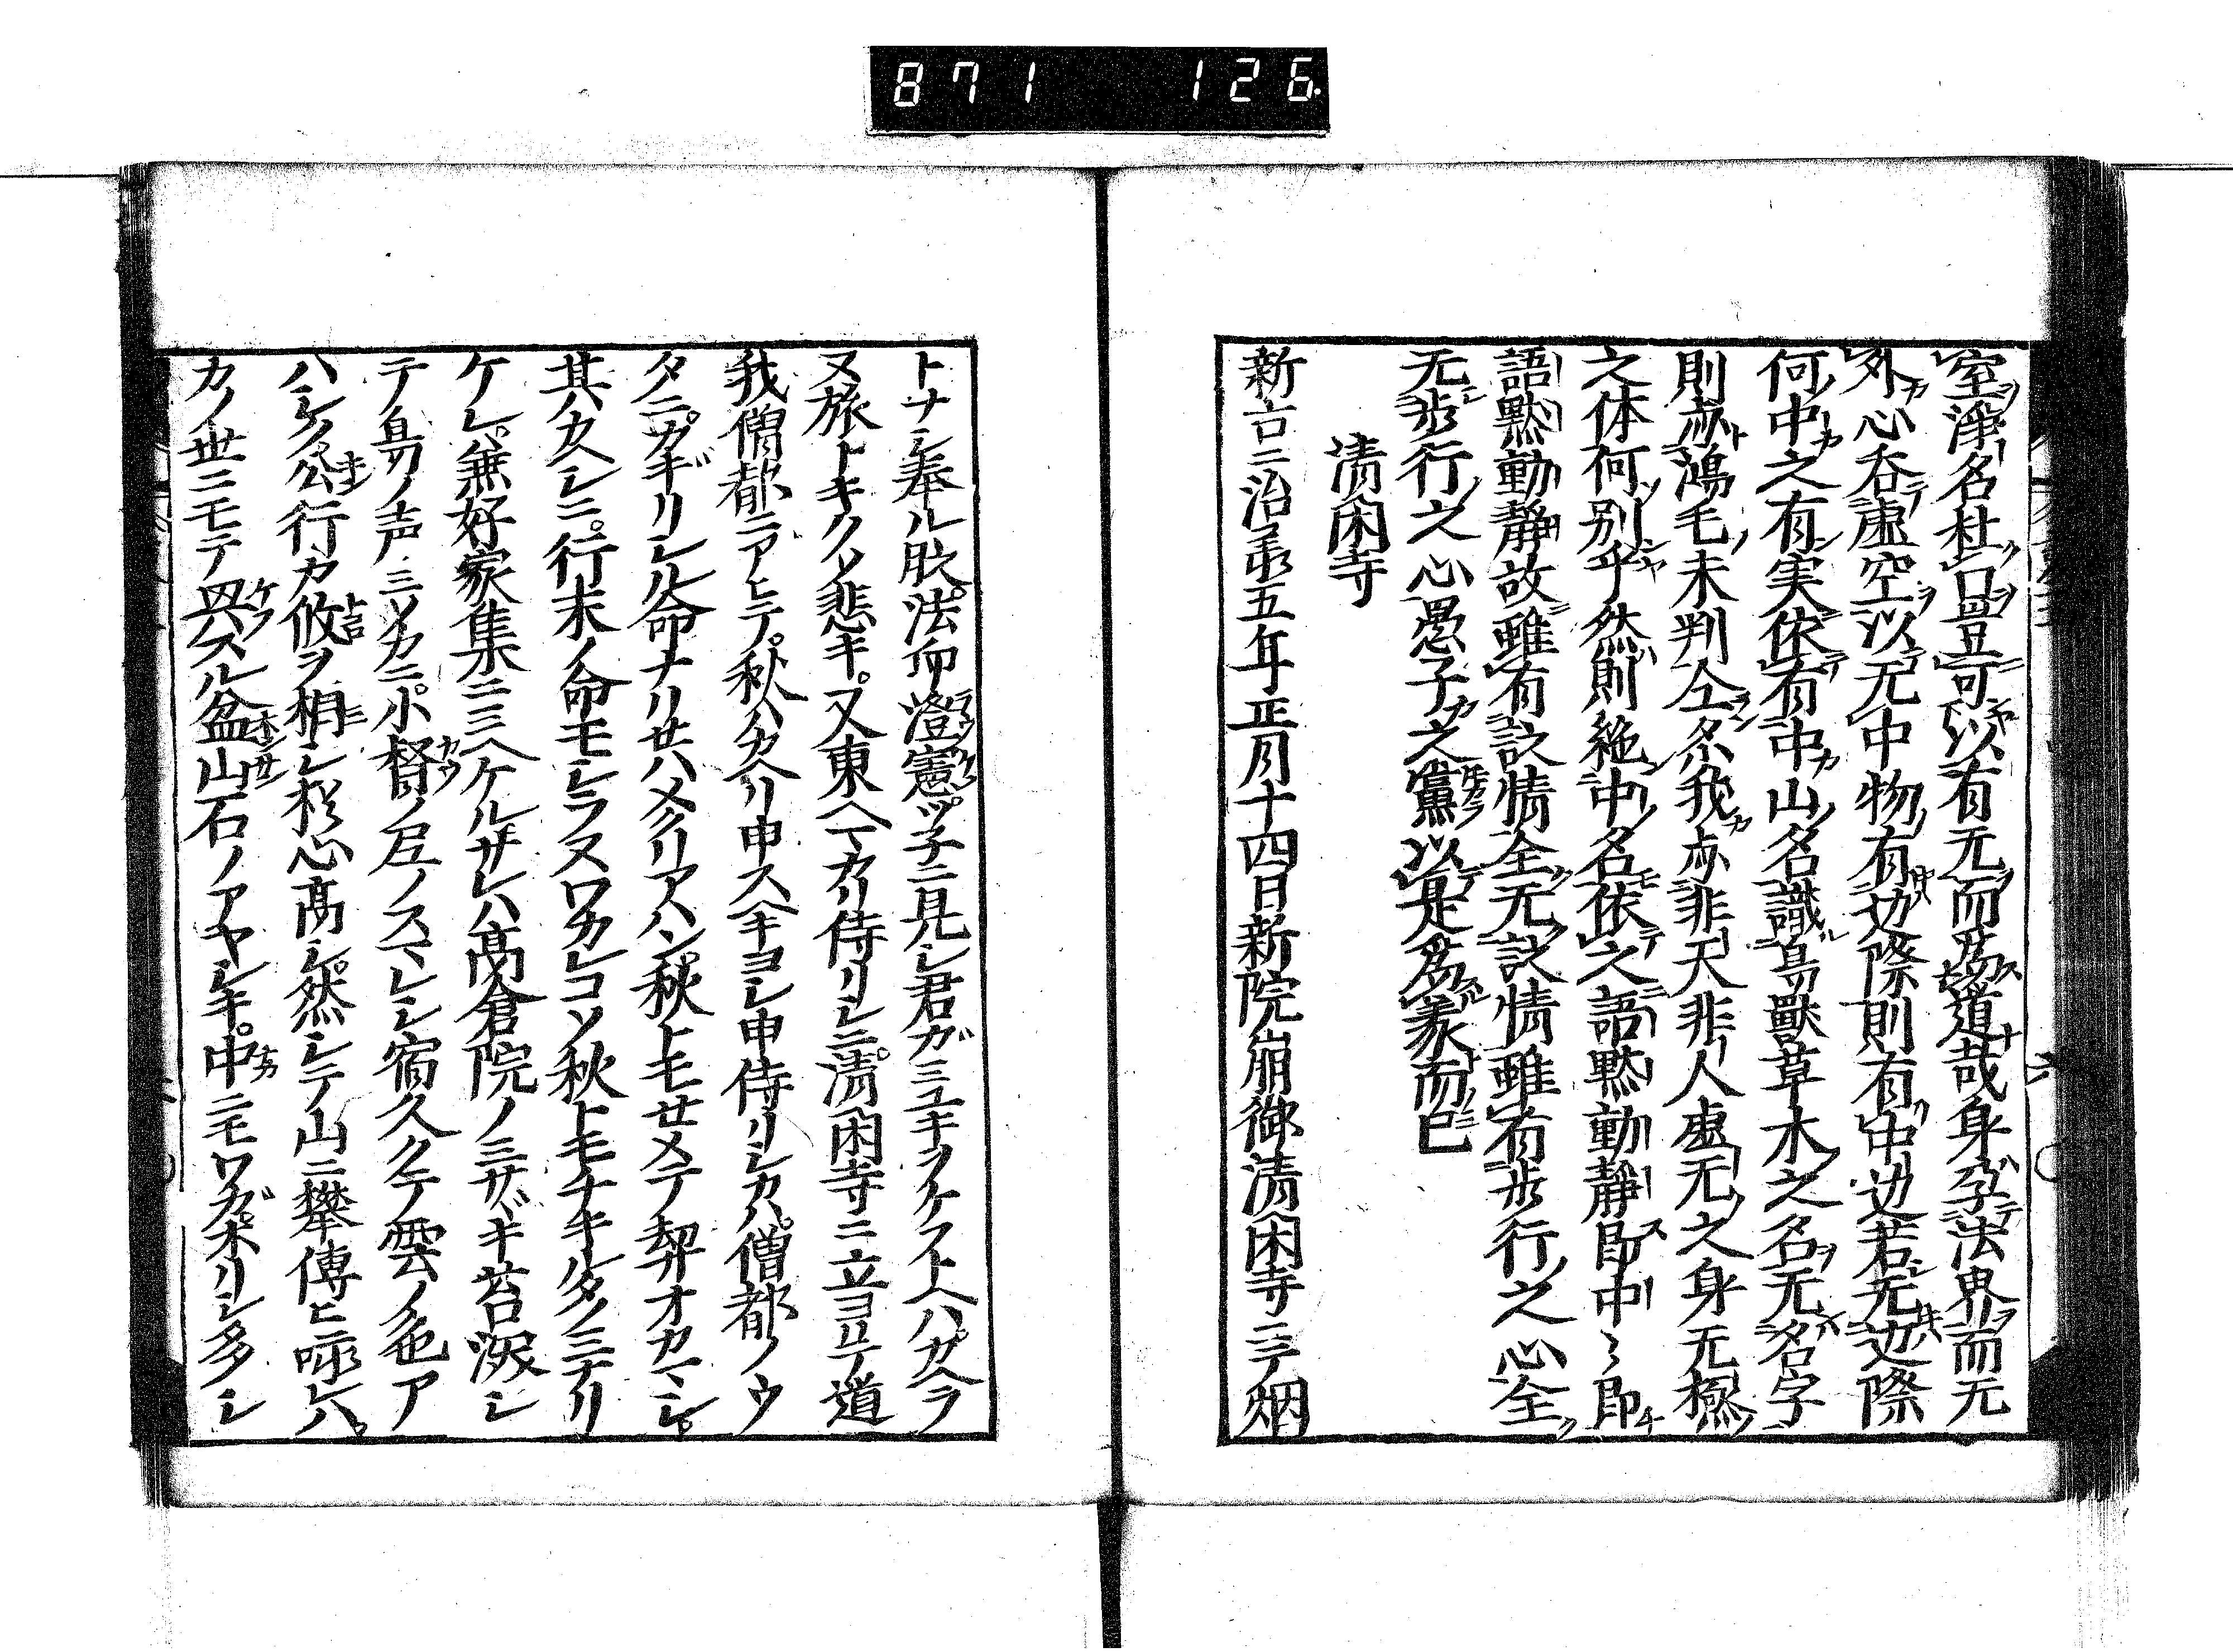 871 126
室浄名杜口豈可以有无而為道哉身孕法界而无
外心呑虚空以无中物有辺際則有中辺若无辺際
何中之有実依有中山名識鳥獣草木之名无名字
則亦鴻毛未判仝糸我亦非天非人虚无之身无極
之体何別乎然則絶中名依之語黙動静即中〻即
語黙動静故雖有訟情全无訟情雖有歩行之心全
无歩行之心愚子之黨以是為家而已
清閑寺
新古ニ治承五年正月十四日新院崩御清閑寺ニテ烟
トナシ奉ル時。法印澄憲ツ子ニ見シ君ガミユキヲケフトヘハ。カヘラ
ヌ旅トキクソ悲キ。又東ヘマカリ侍リシニ。清閑寺ニ立ヨリテ道
我僧都ニアヒテ。秋ハカヘリ申スヘキヨシ申侍リシカハ。僧都ノウ
タニ。カギリシル命ナリセハメクリアハン。秋トモセメテ契オカマシ。
其ハカヘシニ。行末ノ命モシラヌワカレコソ秋トモチキルタノミナリ
ケレ。兼好家集ニミヘケルサレハ高倉院ノミサヾキ苔深シ
テ鳥ノ声ミソカニ。小督ノ尼ノスマレシ宿久クテ雲ノ色ア
ハレケク公行カ攸ヲ相シ松心高シ。然シテ山ニ攀傳ヒ咏レハ。
カノ世ニモテ興スル盆山石ノアヤシキ。中ニモワガホリシ多シ